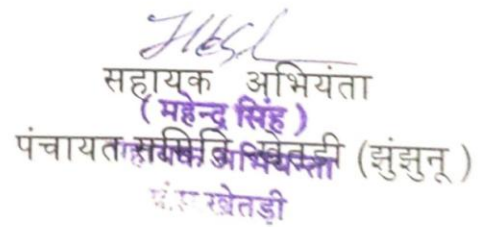 सहायक अभियंता
( महेन्द्र सिंह )
पंचायत समिति खेतड़ी (झुंझुनू )
सहायक अभियन्ता
पं.स. खेतड़ी